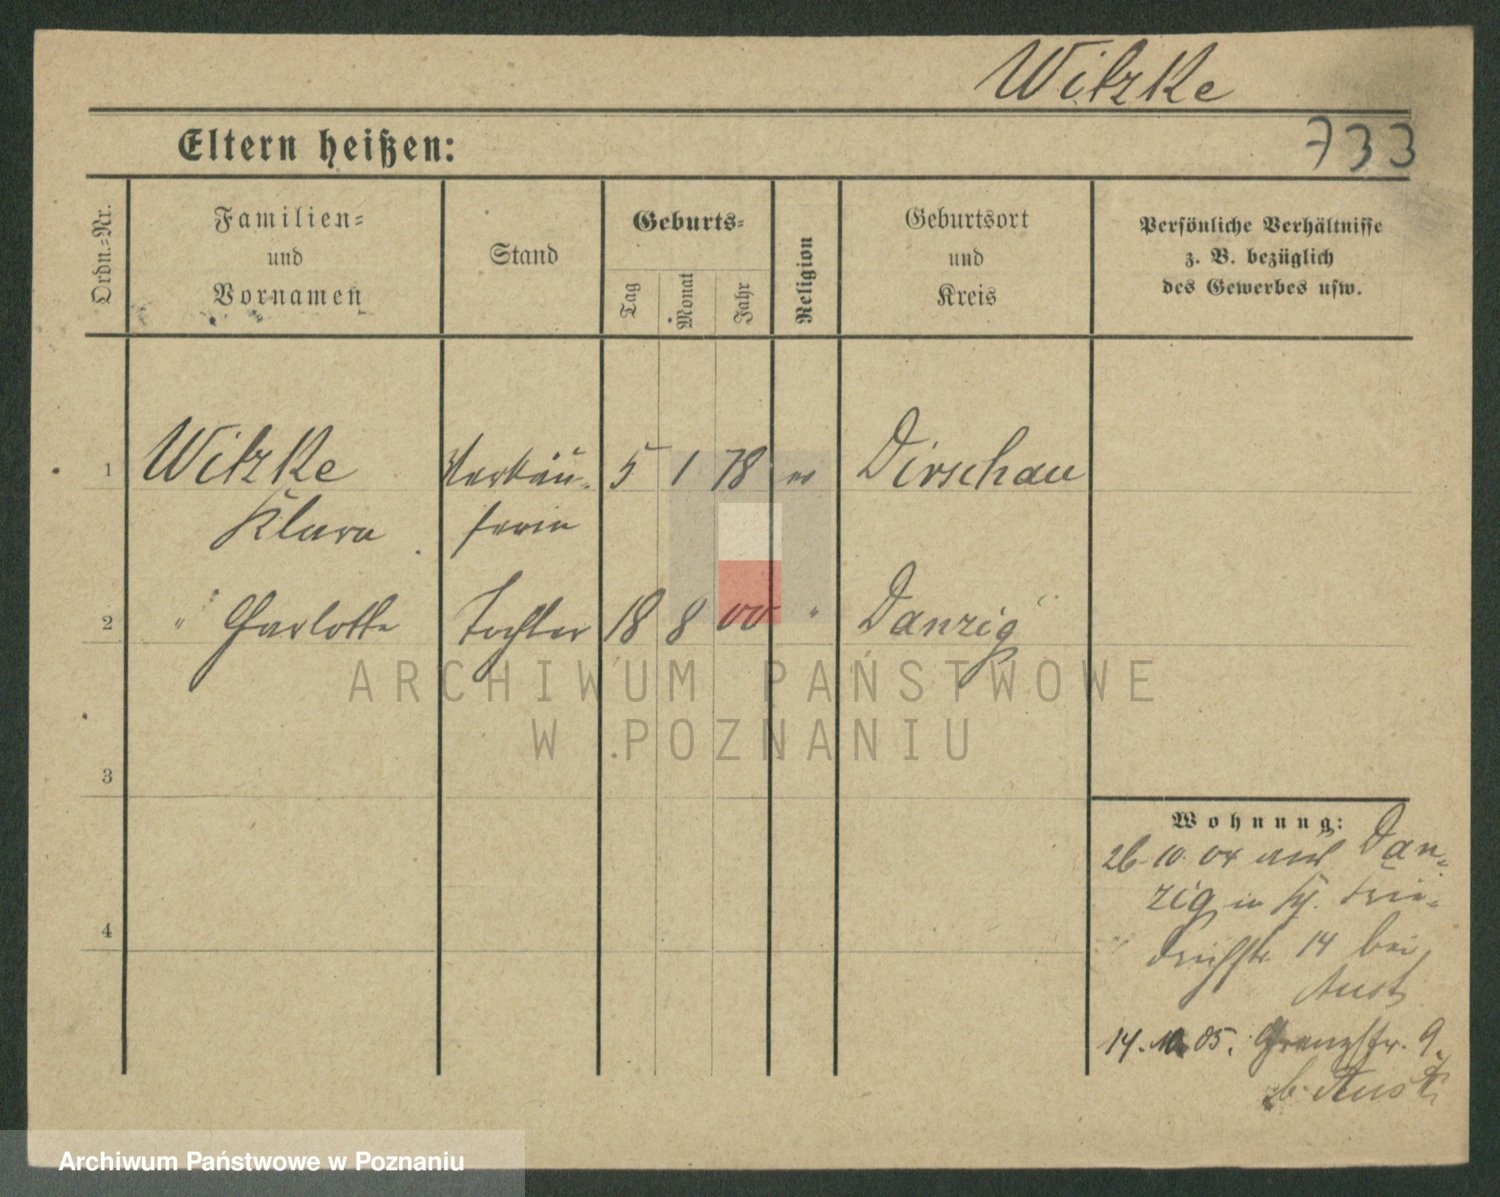 Witzke
Eltern heißen:
733
Ordn.-Nr.
Familien-
und
Vornamen
Stand
Geburts-
Tag
Monat
Jahr
Religion
Geburtsort
und
Kreis
Persönliche Verhältnisse
z. B. bezüglich
des Gewerbes usw.
1 Witzke Verkäu- 5 1 78 ev Dirschau
Klara ferin
2 " Charlotte Tochter 18 8 00 " Danzig
ARCHIWUM PAŃSTWOWE
W POZNANIU
3
4
Wohnung:
26. 10. 04 aus Dan-
zig in
14 bei
Aust
14. 10. 05. Grenzstr. 9.
b. Aust
Archiwum Państwowe w Poznaniu